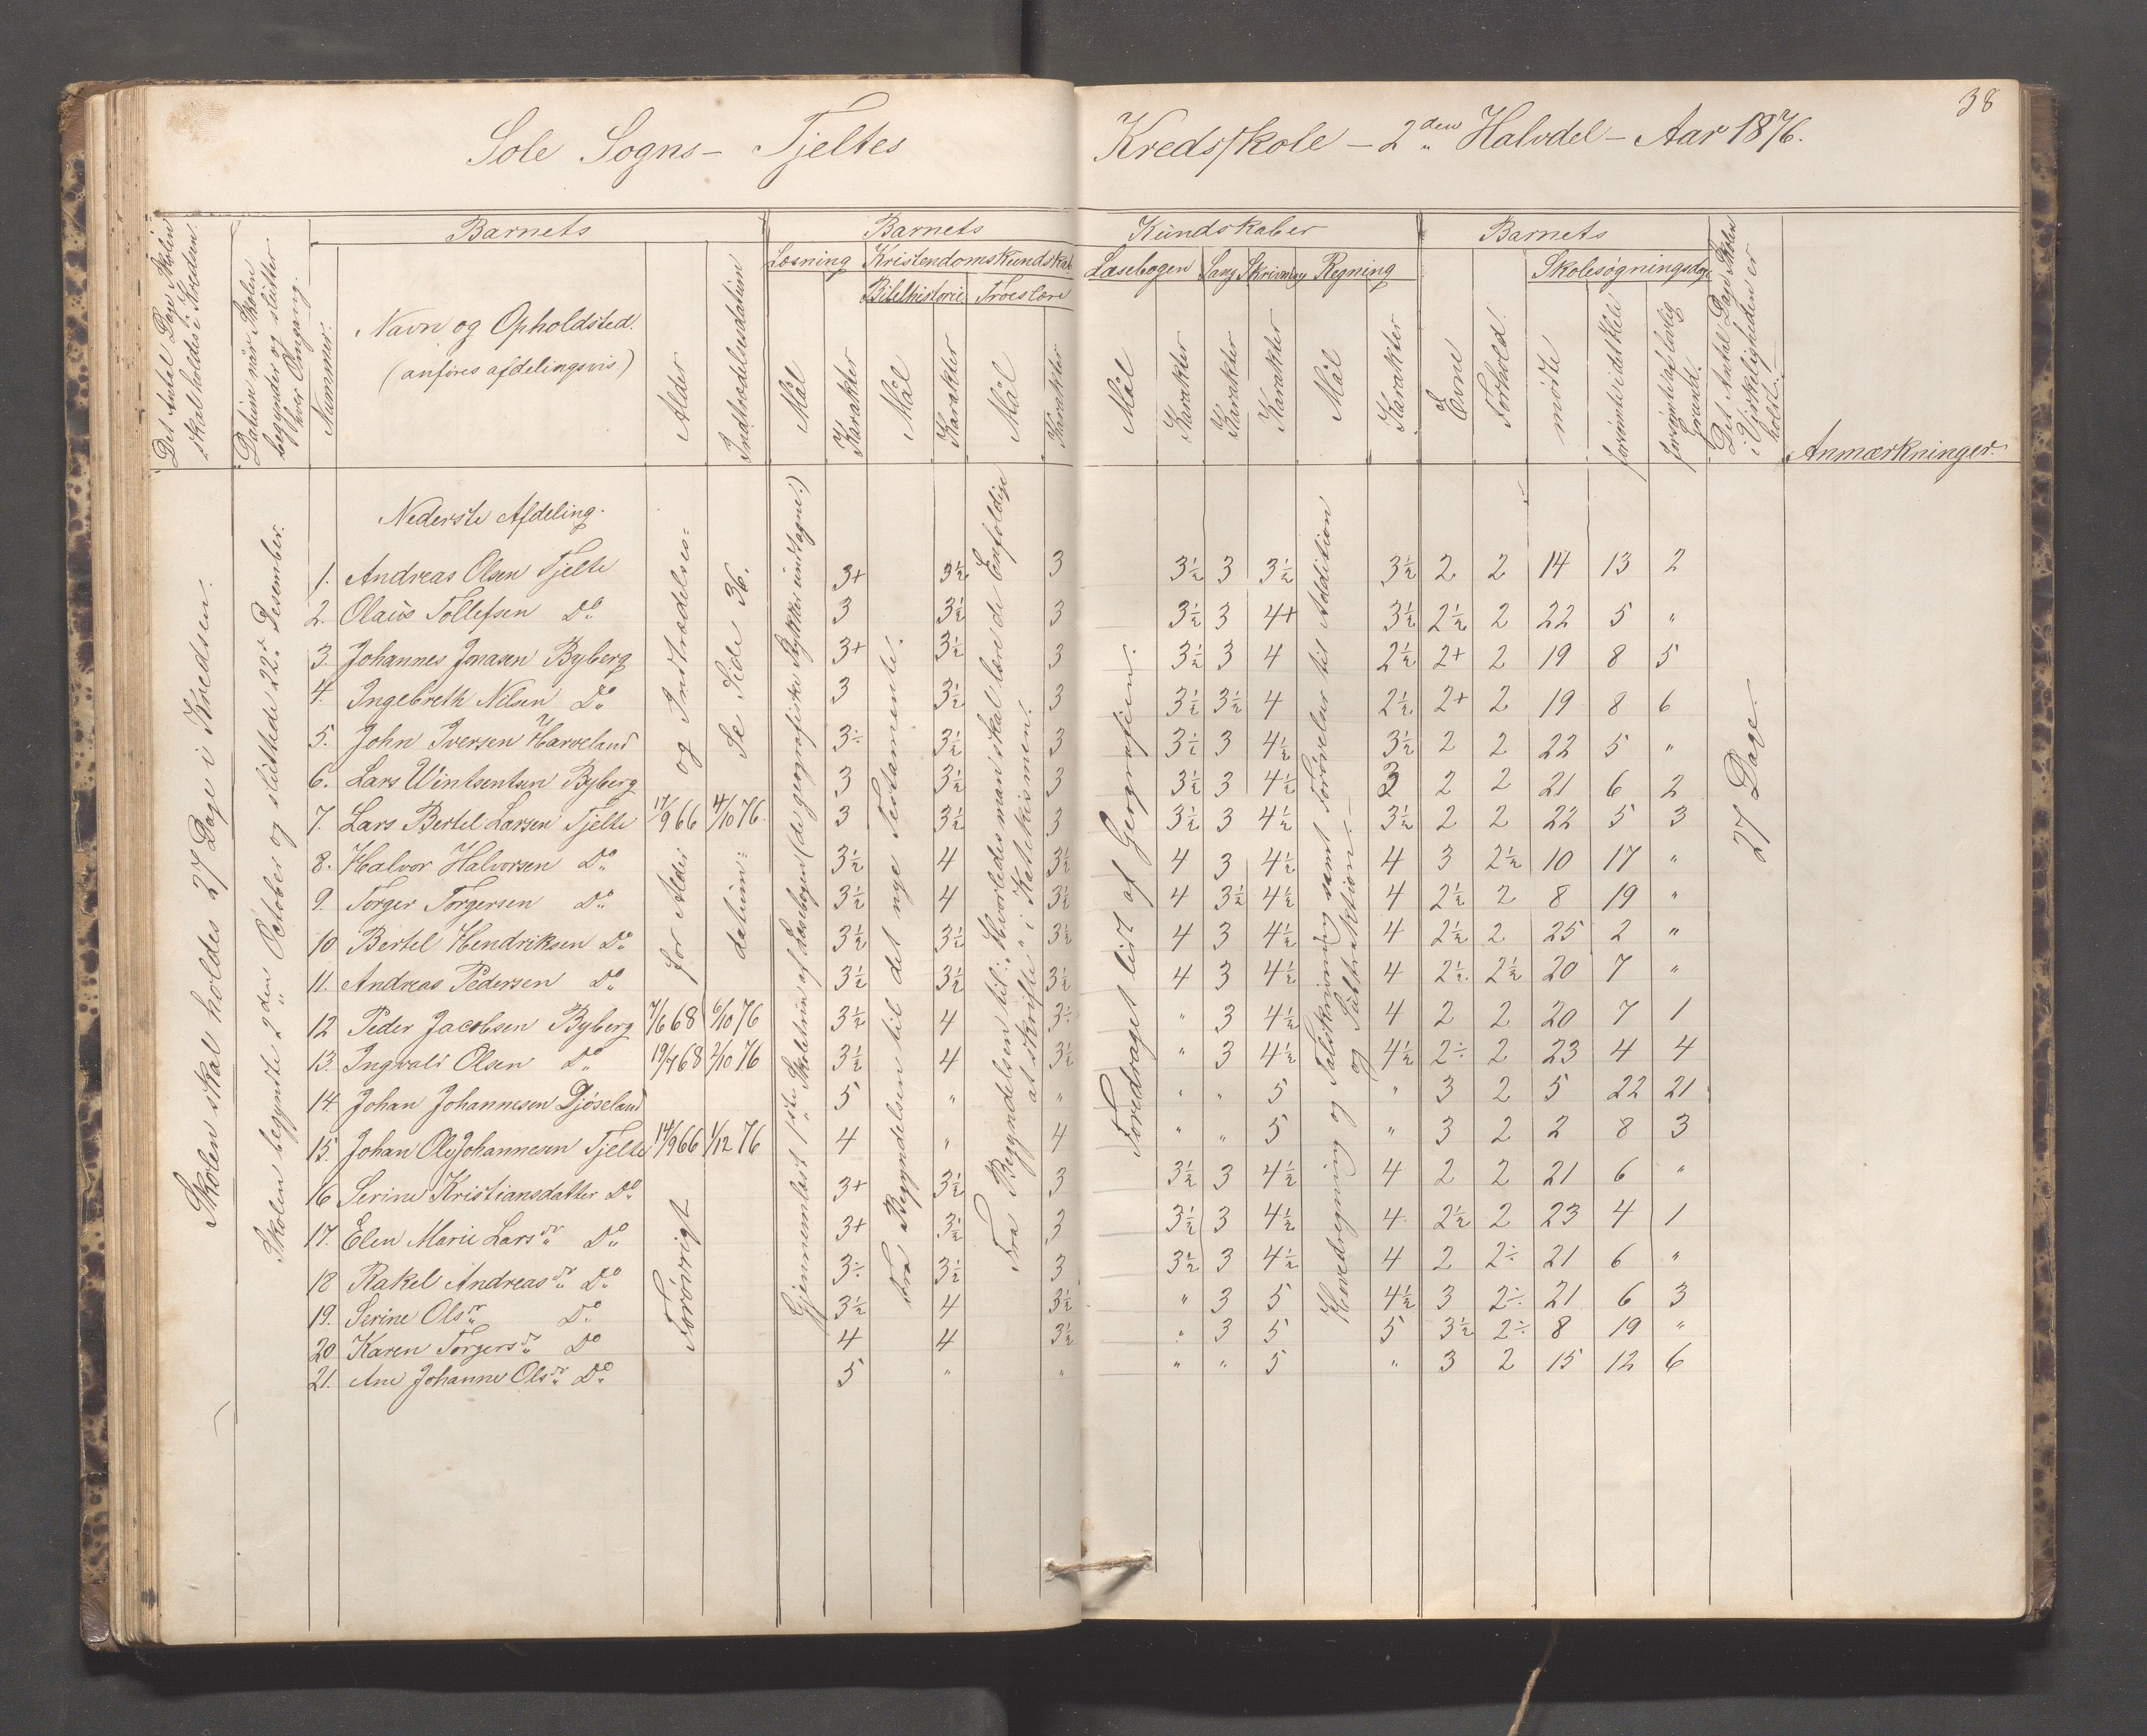 38
Sole Sogns – Tjeltes Kredsskole – 2den Halvdel – Aar 1876.
Barnets Barnets Kundskaber Barnets
Læsning Kristendomskundskab Læsebogen Sang Skrivning Regning Skolesøgningsdage
Bibelhistorie Troeslære
Det Antal Dage Skolen skal holdes i Kredsen.
Datum når Skolen begynder og slutter hver Omgang.
Nummer.
Navn og Opholdsted.
(anføres afdelingsvis)
Alder
Indtrædelsesdatum
Mål Karakter Mål Karakter Mål Karakter
Mål Karakter Karakter Karakter Mål Karakter
af Evne Forhold. mødte forsømte i det Hele forsømte af lovlig Grund.
Det Antal Dage Skolen i Virkeligheden er holdt.
Anmærkninger.
Skolen skal holdes 27 Dage i Kredsen.
Skolen begyndte 2den October og sluttede 22. Desember.
for Alder og Indtrædelses= datum: Se Side 36.
Forøvrigt
Gjennemlæst 1ste Skoletrin af Læsebogen (de geografiske Stykker undtagne.)
Fra Begyndelsen til det nye Testamente.
Fra Begyndelsen til: "Hvorledes man skal lære de Enfoldige at skrifte" i Katekismen.
Foredraget lidt af Geografien.
Hovedregning og Talskrivning samt Forøvelser til Addition og Subtraktion.
27 Dage.
Nederste Afdeling.
1. Andreas Olsen Tjelte 3+ 3½ 3 3½ 3 3½ 3½ 2 2 14 13 2
2. Olaus Tollefsen Do 3 3½ 3 3½ 3 4+ 3½ 2½ 2 22 5 "
3. Johannes Jonasen Byberg 3+ 3½ 3 3½ 3 4 2½ 2+ 2 19 8 5
4. Ingebreth Nilsen Do 3 3½ 3 3½ 3½ 4 2½ 2+ 2 19 8 6
5. John Iversen Harveland 3÷ 3½ 3 3½ 3 4½ 3½ 2 2 22 5 "
6. Lars Wintsentsen Byberg 3 3½ 3 3½ 3 4½ 3 2 2 21 6 2
7. Lars Bertel Larsen Tjelte 17/9 66 4/10 76. 3 3½ 3 3½ 3 4½ 3½ 2 2 22 5 3
8. Halvor Halvorsen Do 3½ 4 3½ 4 3 4½ 4 3 2½ 10 17 "
9. Torger Torgersen Do 3½ 4 3½ 4 3½ 4½ 4 2½ 2 8 19 "
10 Bertel Hendriksen Do 3½ 3½ 3½ 4 3 4½ 4 2½ 2 25 2 "
11. Andreas Pedersen Do 3½ 3½ 3½ 4 3 4½ 4 2½ 2½ 20 7 "
12 Peder Jacobsen Byberg 7/6 68 6/10 76 3½ 4 3÷ " 3 4½ 4 2 2 20 7 1
13. Ingvald Olsen Do 19/7 68 2/10 76 3½ 4 3½ " 3 4½ 4½ 2÷ 2 23 4 4
14 Johan Johannesen Djøseland 5 " " " " 5 " 3 2 5 22 21
15. Johan Ole Johannesen Tjelte 14/9 66 1/12 76 4 " 4 " " 5 " 3 2 2 8 3
16 Serine Kristiansdatter Do 3+ 3½ 3 3½ 3 4½ 4 2 2 21 6 "
17. Elen Marie Larsdr Do 3+ 3½ 3 3½ 3 4½ 4 2½ 2 23 4 1
18 Rakel Andreasdr Do 3÷ 3½ 3 3½ 3 4½ 4 2 2÷ 21 6 "
19. Serine Olsdr Do 3½ 4 3½ " 3 5 4½ 3 2÷ 21 6 3
20 Karen Torgersdr Do 4 4 3½ " 3 5 5 3½ 2÷ 8 19 "
21. Ane Johanne Olsdr Do 5 " " " " 5 " 3 2 15 12 6